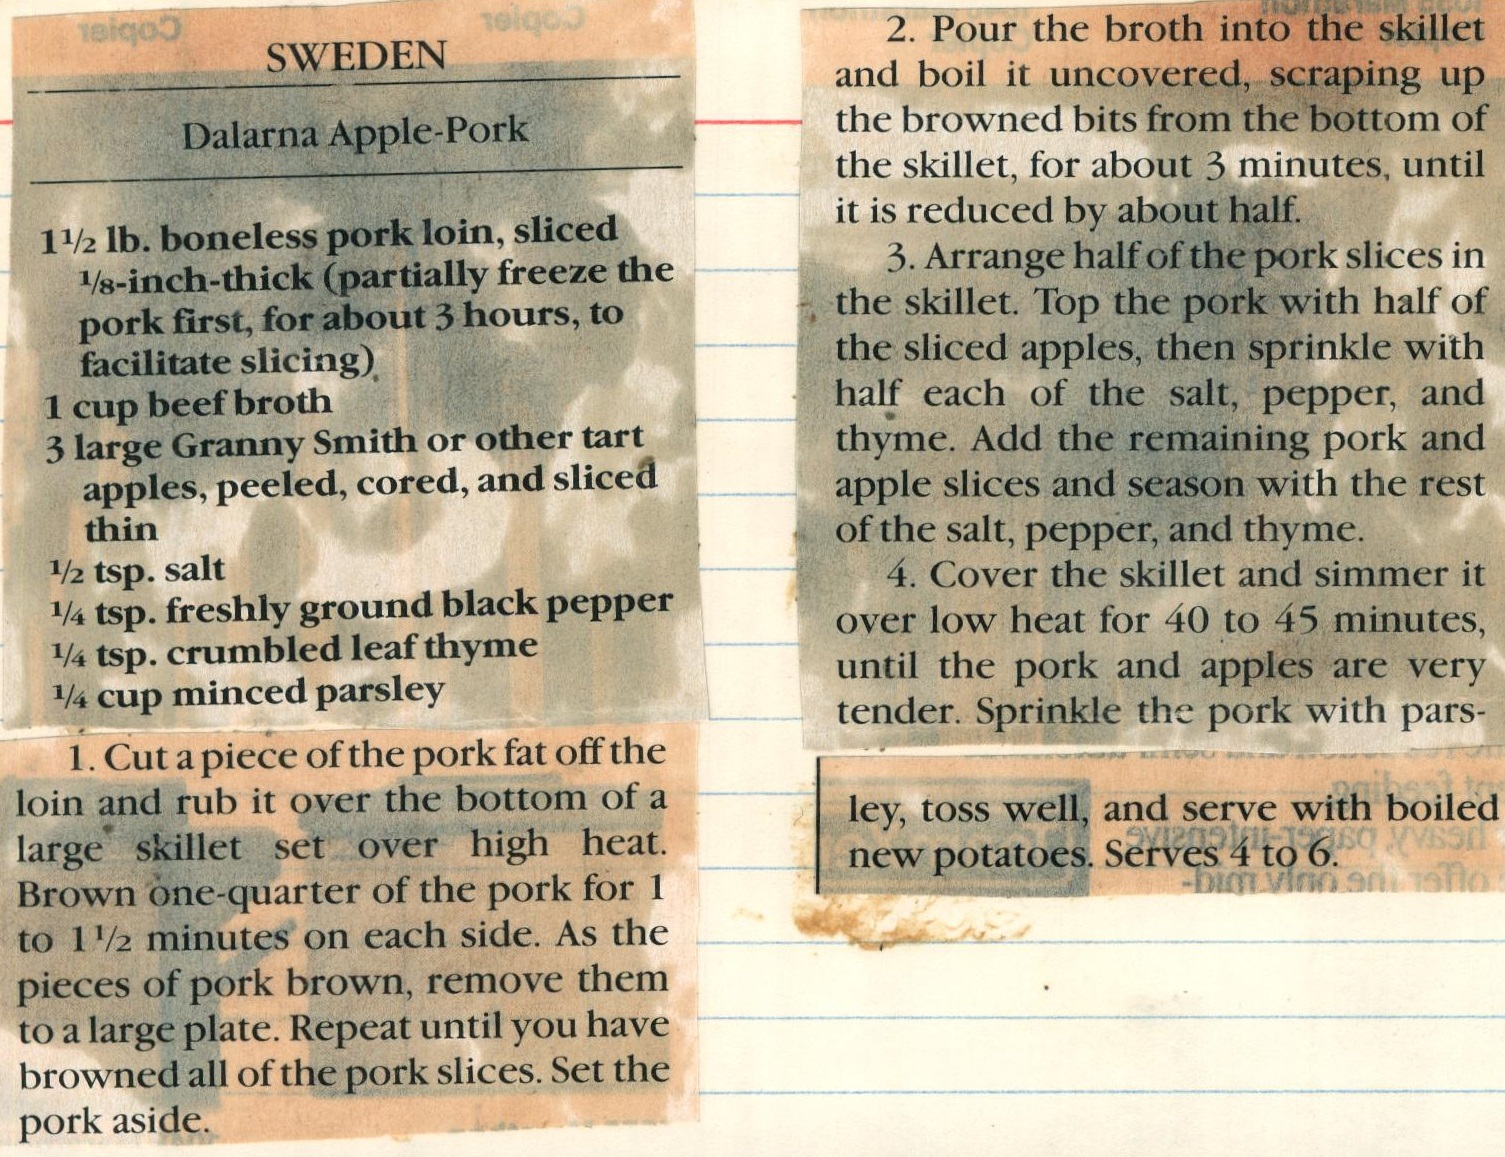 Copier
Copier
SWEDEN
Dalarna Apple-Pork
1 1/2 lb. boneless pork loin, sliced
1/8-inch-thick (partially freeze the
pork first, for about 3 hours, to
facilitate slicing)
1 cup beef broth
3 large Granny Smith or other tart
apples, peeled, cored, and sliced
thin
1/2 tsp. salt
1/4 tsp. freshly ground black pepper
1/4 tsp. crumbled leaf thyme
1/4 cup minced parsley
1. Cut a piece of the pork fat off the
loin and rub it over the bottom of a
large skillet set over high heat.
Brown one-quarter of the pork for 1
to 1 1/2 minutes on each side. As the
pieces of pork brown, remove them
to a large plate. Repeat until you have
browned all of the pork slices. Set the
pork aside.
2. Pour the broth into the skillet
and boil it uncovered, scraping up
the browned bits from the bottom of
the skillet, for about 3 minutes, until
it is reduced by about half.
3. Arrange half of the pork slices in
the skillet. Top the pork with half of
the sliced apples, then sprinkle with
half each of the salt, pepper, and
thyme. Add the remaining pork and
apple slices and season with the rest
of the salt, pepper, and thyme.
4. Cover the skillet and simmer it
over low heat for 40 to 45 minutes,
until the pork and apples are very
tender. Sprinkle the pork with pars-
ley, toss well, and serve with boiled
new potatoes. Serves 4 to 6.
feeding
heavy, paper-intensive
offer the only mid-